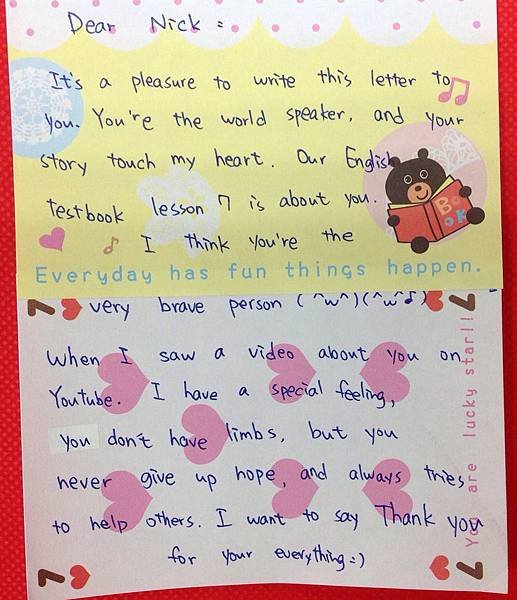 Dear Nick :
It's a pleasure to write this letter to
you. You're the world speaker, and your
story touch my heart. Our English
testbook lesson 7 is about you.
Book
I think you're the
Everyday has fun things happen.
7 very brave person (^w^)(^w^♪) 7
When I saw a video about you on
Youtube. I have a special feeling,
you don't have limbs, but you
never give up hope, and always tries
to help others. I want to say Thank you
for your everything=)
You are lucky star!!
7 7